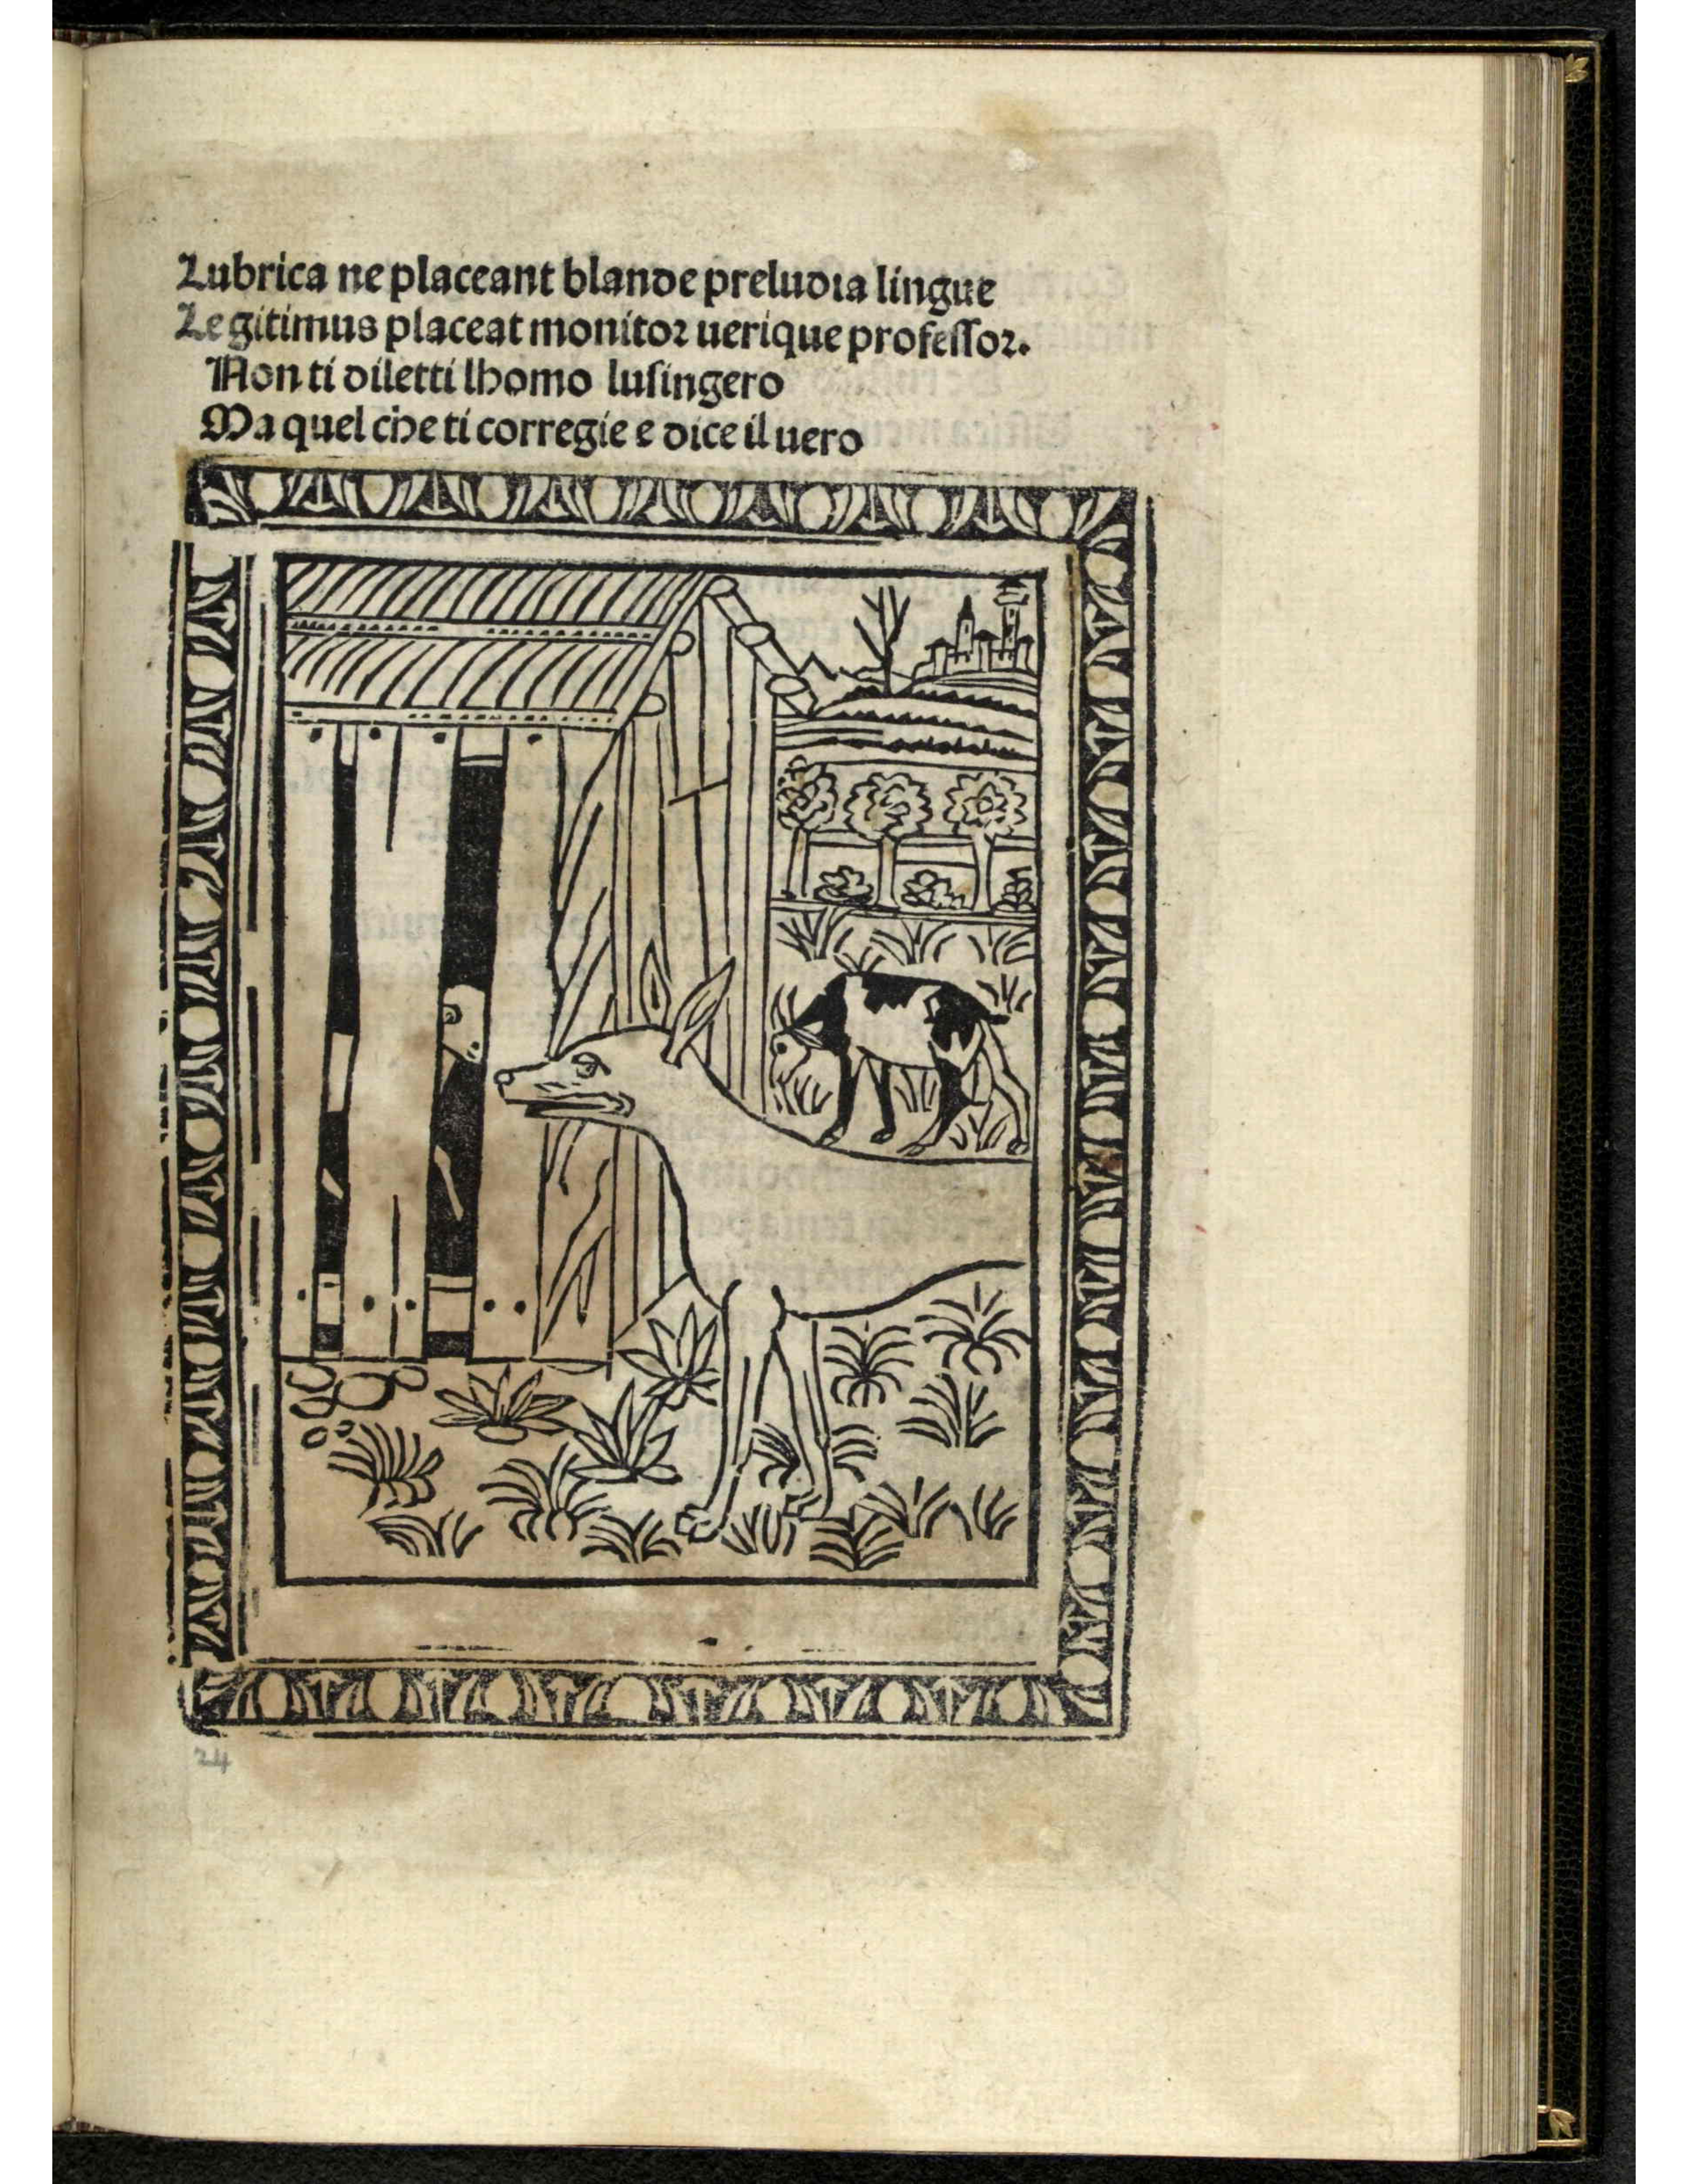 Lubrica ne placeant blande preludia lingue
Legitimus placeat monitor uerique professor.
Non ti diletti lhomo lusingero
Ma quel che ti corregie e dice il uero
24